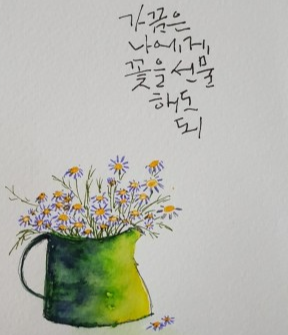 가끔은
나에게
꽃을 선물
해도
되